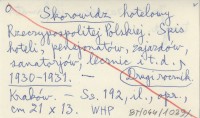 Skorowidz hotelowy
Rzeczypospolitej Polskiej. Spis
hoteli, pensjonatów, zajazdów,
sanatorjów, lecznic i t.d.
1930-1931. — Drugi rocznik.
Kraków. — Ss. 192, il., opr.,
cm 21 x 13. WHP